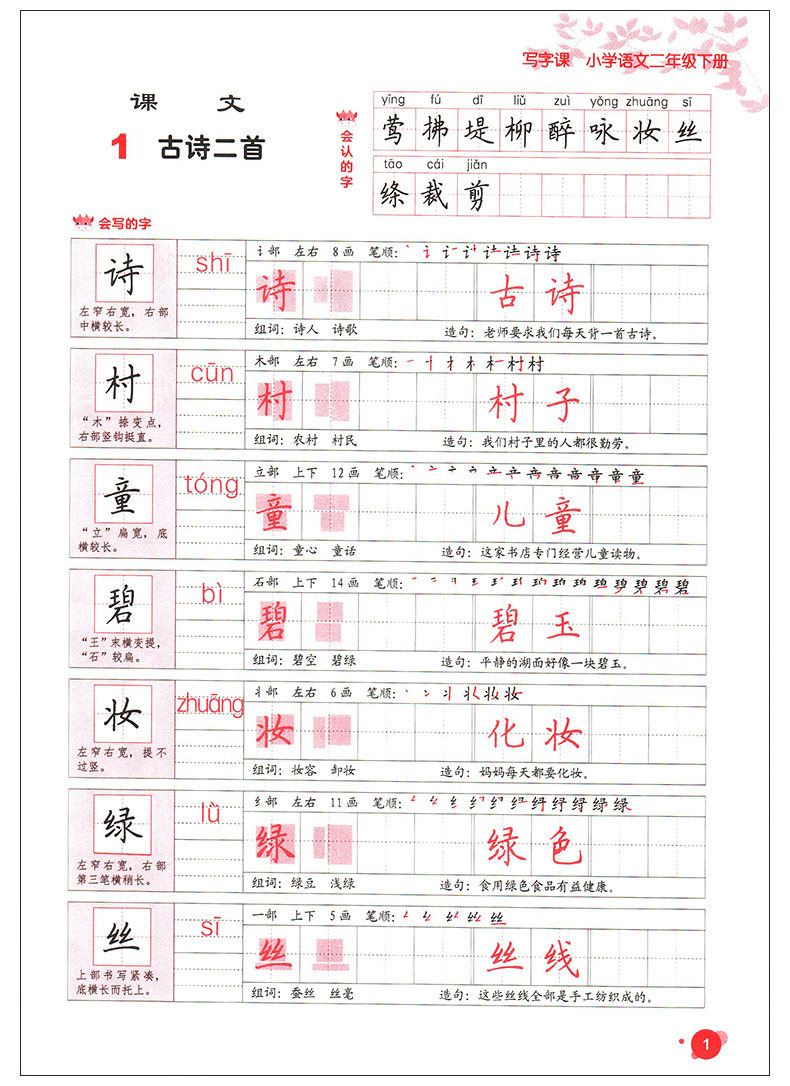 写字课 小学语文二年级下册
课 文
1 古诗二首
会认的字
yīng fú dī liǔ zuì yǒng zhuāng sī
莺 拂 堤 柳 醉 咏 妆 丝
tāo cái jiǎn
绦 裁 剪
会写的字
诗
左窄右宽，右部
中横较长。
shī
讠部 左右 8画 笔顺：
诗 古 诗
组词：诗人 诗歌 造句：老师要求我们每天背一首古诗。
村
“木”捺变点，
右部竖钩挺直。
cūn
木部 左右 7画 笔顺：
村 村 子
组词：农村 村民 造句：我们村子里的人都很勤劳。
童
“立”扁宽，底
横较长。
tóng
立部 上下 12画 笔顺：
童 儿 童
组词：童心 童话 造句：这家书店专门经营儿童读物。
碧
“王”末横变提，
“石”较扁。
bì
石部 上下 14画 笔顺：
碧 碧 玉
组词：碧空 碧绿 造句：平静的湖面好像一块碧玉。
妆
左窄右宽，提不
过竖。
zhuāng
丬部 左右 6画 笔顺：
妆 化 妆
组词：妆容 卸妆 造句：妈妈每天都要化妆。
绿
左窄右宽，右部
第三笔横稍长。
lǜ
纟部 左右 11画 笔顺：
绿 绿 色
组词：绿豆 浅绿 造句：食用绿色食品有益健康。
丝
上部书写紧凑，
底横长而托上。
sī
一部 上下 5画 笔顺：
丝 丝 线
组词：蚕丝 丝毫 造句：这些丝线全部是手工纺织成的。
1